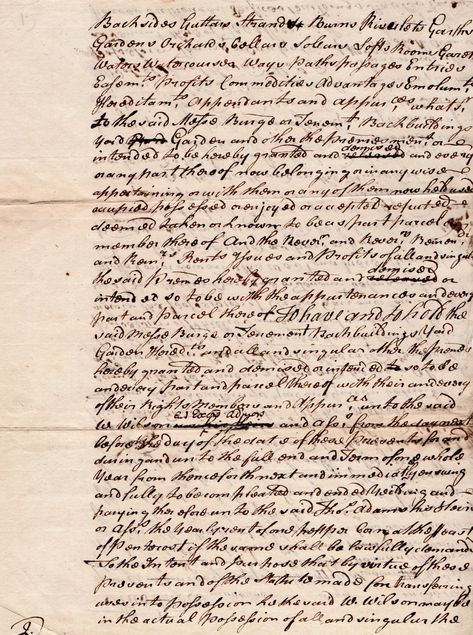 Backsides Gutters Strands Burns Rivulets Garths
Gardens Orchards Cellars Solears Lofts Rooms
Waters Watercourses Ways Paths passages Entries
Easem.ts Profits Commodities Advantages Emolum.ts
Hereditam.ts Appendants and Appur.ces whats.r
to the said Messe Burge or Tenem.t Backbuildings
Yard Garden and other the premes ment.d or
intended to be hereby granted and demised and every
or any part thereof now belonging or in any wise
appertaining or with them or any of them now held used
occupied possessed or enjoyed or accepted reputed
deemed taken or known to be as part parcel or
member thereof And the Rever.n and Rever.s Remain.r
and Rem.rs Rents Issues and Profits of all and singular
the said Premes hereby granted and demised or
intended so to be with the appurtenances and every
part and parcel thereof To have and to hold the
said Messe Burge or Tenement Backbuildings Yard
Garden Heredit. and all and singular other the premes
hereby granted and demised or intended so to be
and every part and parcel thereof with their and every
of their Rights Members and Appur.ces unto the said
W. Wilson and Ass.s from the day next
before the day of the date of these presents for and
during and unto the full end and Term of one whole
Year from thenceforth next and immediately ensuing
and fully to be compleated and ended Yielding and
paying therefore unto the said Tho.s Adams his Heirs
or Ass.s the Yearly rent of one pepper Corn at the Feast
of Pentecost if the same shall be lawfully demanded
To the Intent and purpose that by virtue of these
presents and of the Statute made for transferring
uses into possession he the said W. Wilson may be
in the actual Possession of all and singular the